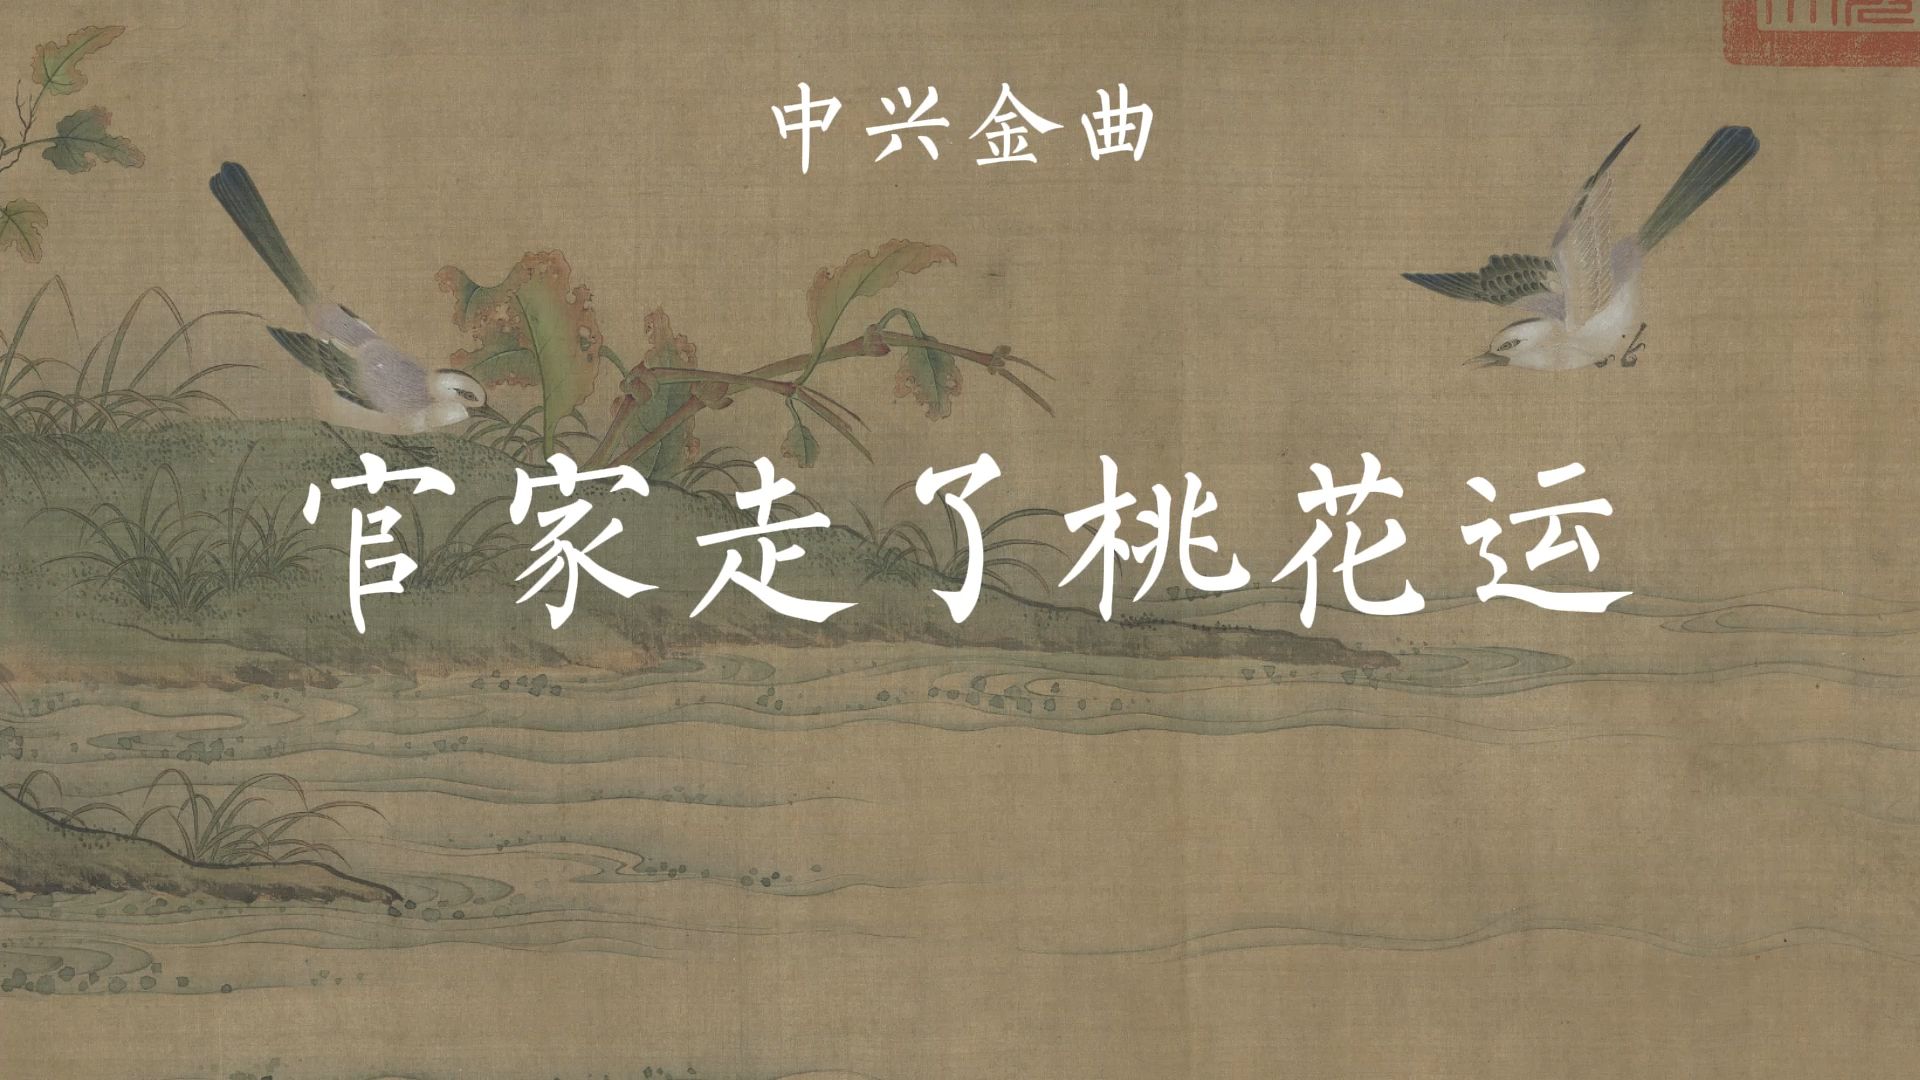 中兴金曲
官家走了桃花运